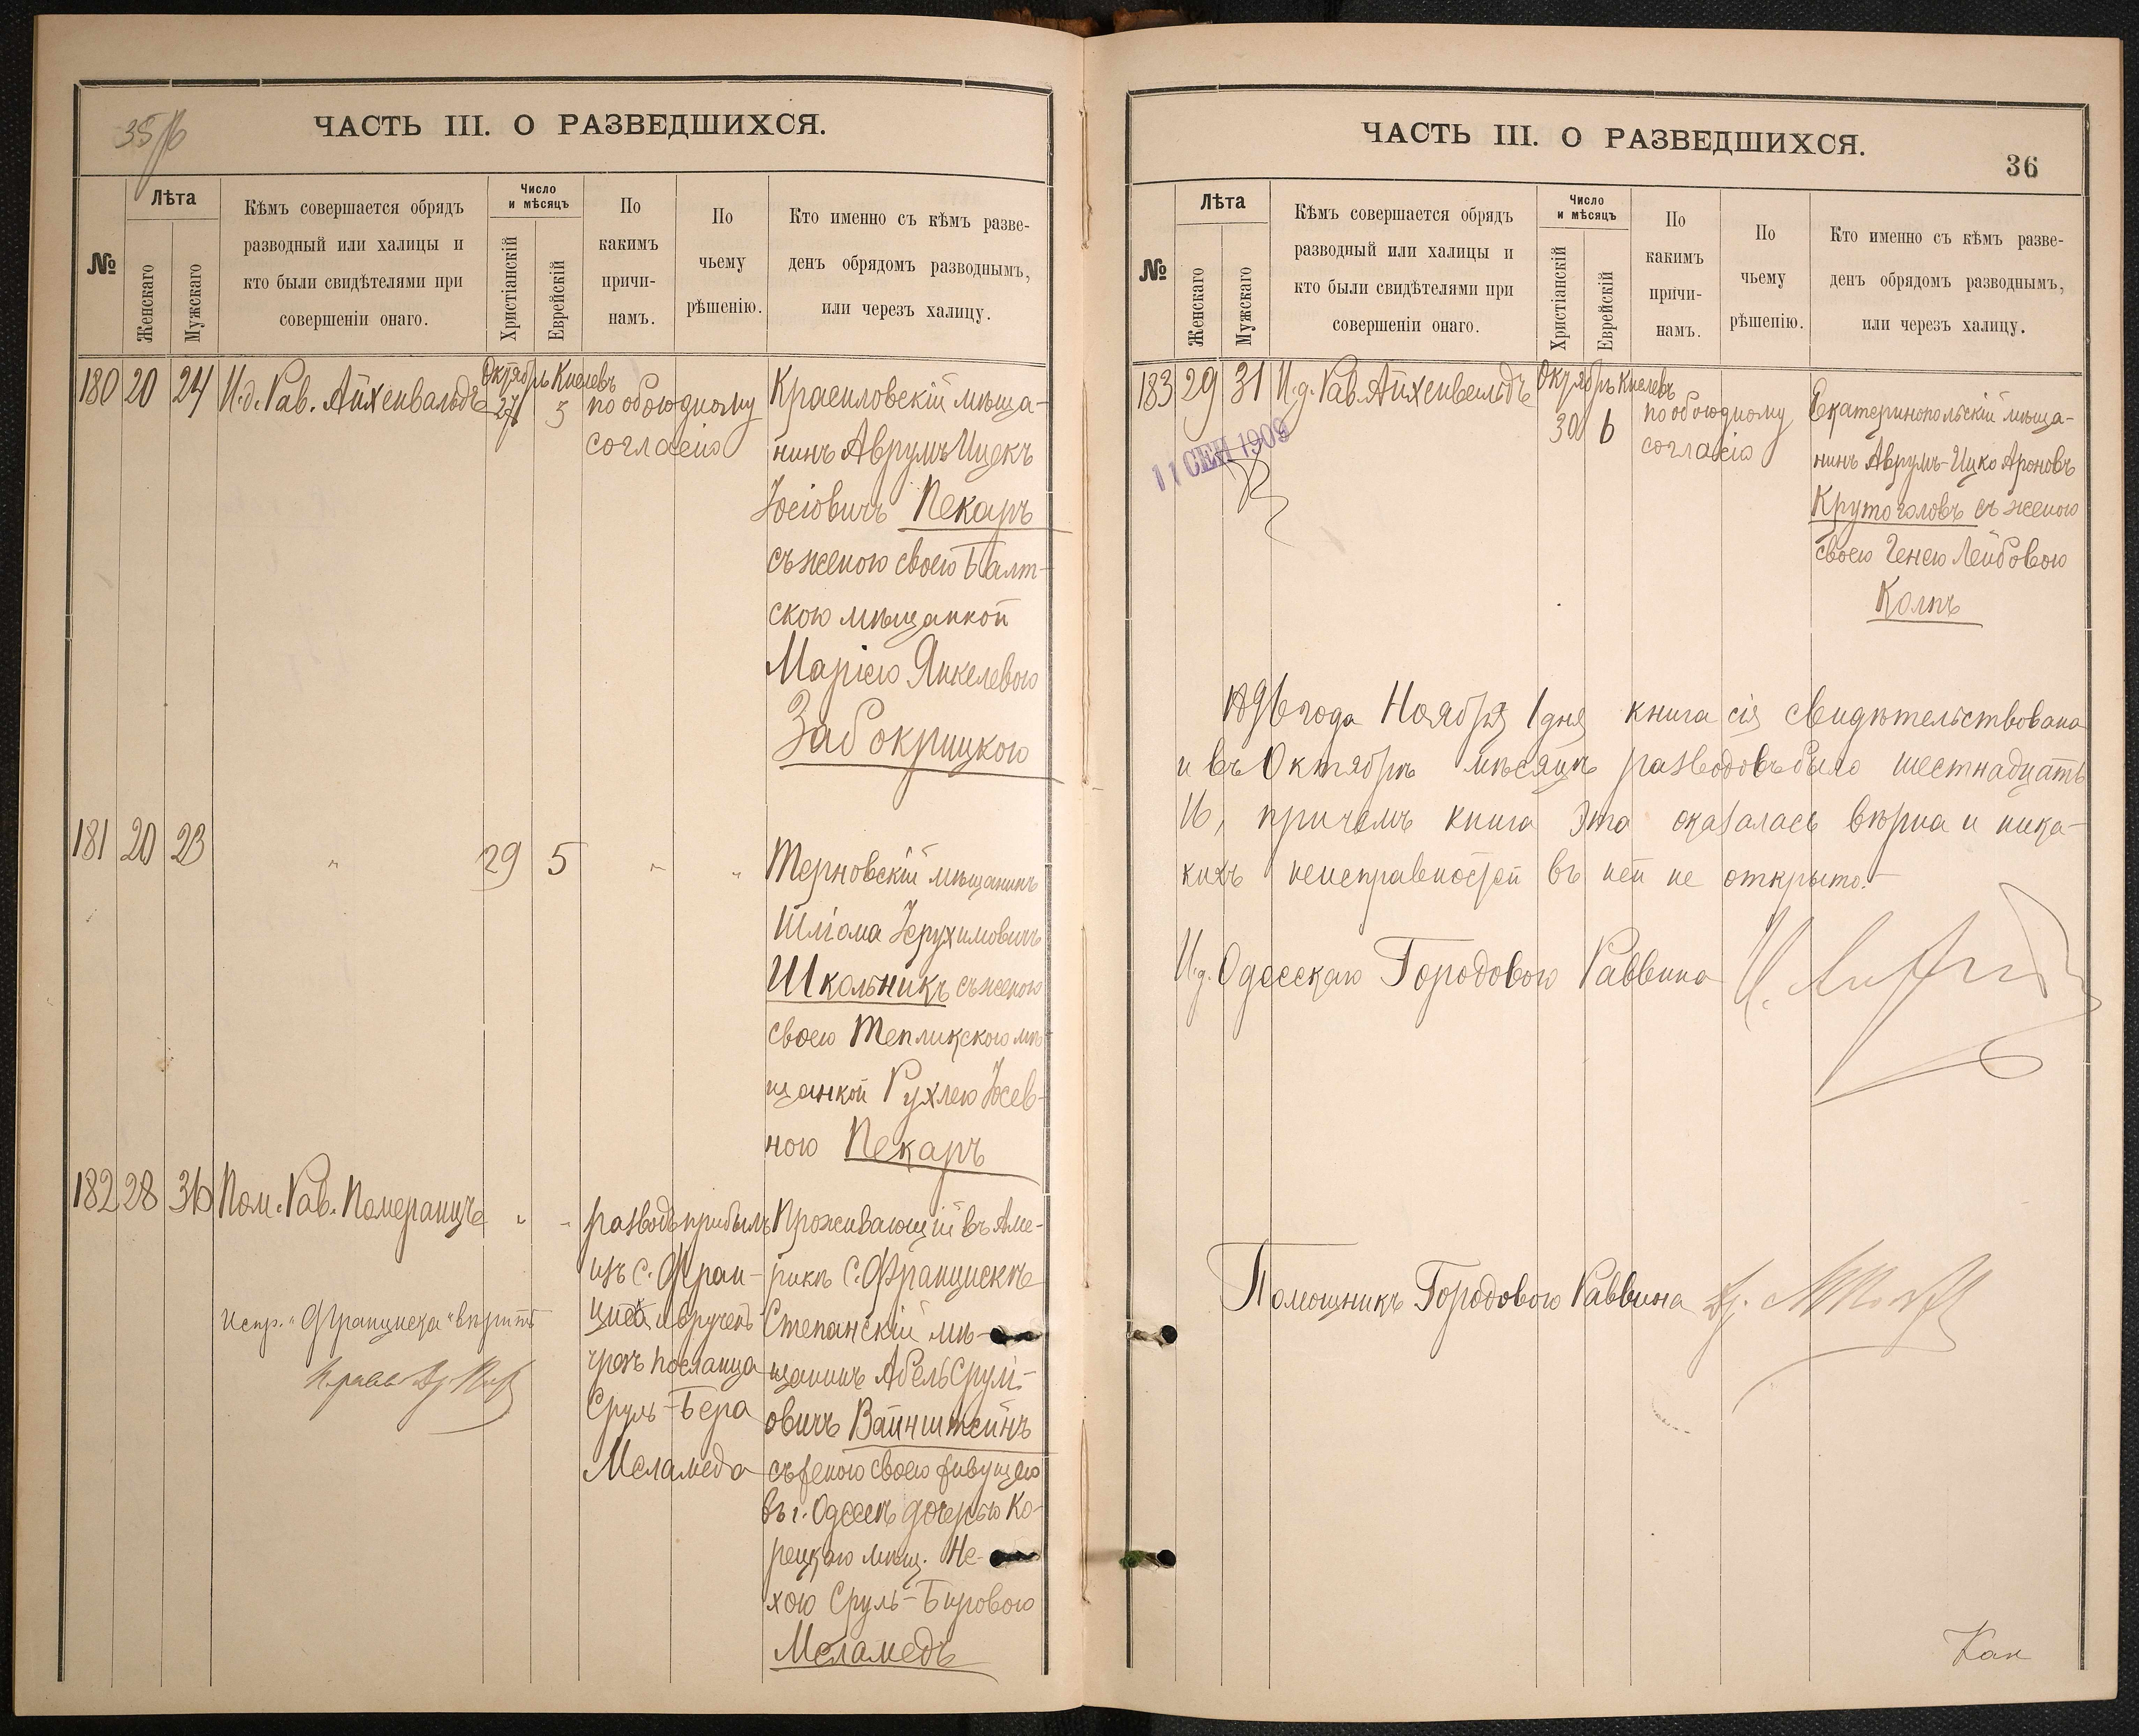 ЧАСТЬ III. О РАЗВЕДШИХСЯ.
№
Лѣта
Женскаго
Мужскаго
Кѣмъ совершается обрядъ
разводный или халицы и
кто были свидѣтелями при
совершеніи онаго.
Число
и мѣсяцъ
Христіанскій
Еврейскій
По
какимъ
причи-
намъ.
По
чьему
рѣшенію.
Кто именно съ кѣмъ разве-
денъ обрядомъ разводнымъ,
или черезъ халицу.
180 20 24 И.д. Рав. Айхенвальдъ
Октябрь Кислевъ
27 3
по обоюдному
согласію
Красиловскій мѣща-
нинъ Аврумъ Ицекъ
Іосіовичъ Пекаръ
съ женою своею Балт-
скою мѣщанкой
Маріею Янкелевою
Забокрицкою
181 20 23 " 29 5 " "
Терновскій мѣщанинъ
Шліома Іерухимовичъ
Школьникъ съ женою
своею Тепликскою мѣ-
щанкой Рухлею Іосев-
ною Пекаръ
182 28 36 Пом. Рав. Померанцъ " "
разводъ прибылъ
изъ С. Фран-
циска и врученъ
чрезъ посланца
Сруль-Бера
Меламеда
Испр. "Франциска" вѣрить
Проживающій въ Аме-
рикѣ С. Францискѣ
Степанскій мѣ-
щанинъ Абель Срулі-
овичъ Вайнштейнъ
съ женою своею живущею
въ г. Одессѣ дочерью Ко-
рецкаго мѣщ. Не-
хою Сруль-Беровою
Меламедъ
ЧАСТЬ III. О РАЗВЕДШИХСЯ.
36
№
Лѣта
Женскаго
Мужскаго
Кѣмъ совершается обрядъ
разводный или халицы и
кто были свидѣтелями при
совершеніи онаго.
Число
и мѣсяцъ
Христіанскій
Еврейскій
По
какимъ
причи-
намъ.
По
чьему
рѣшенію.
Кто именно съ кѣмъ разве-
денъ обрядомъ разводнымъ,
или черезъ халицу.
183 29 31 И.д. Рав. Айхенвальдъ
Октябрь Кислевъ
30 6
по обоюдному
согласію
11 СЕН 1909
Екатеринопольскій мѣща-
нинъ Аврумъ-Ицко Ароновъ
Крутоголовъ съ женою
своею Генею Лейбовою
Колкъ
1896 года Ноября 1 дня книга сія свидѣтельствована
и въ Октябрѣ мѣсяцѣ разводовъ было шестнадцать
16, причемъ книга эта оказалась вѣрна и ника-
кихъ неисправностей въ ней не открыто.
И.д. Одесскаго Городового Раввина
Помощникъ Городового Раввина Др.